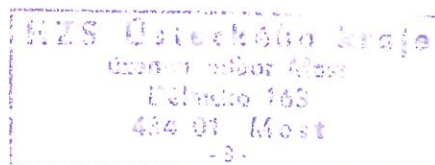 HZS Ústeckého kraje
územní odbor Most
163
434 01 Most
- 3 -